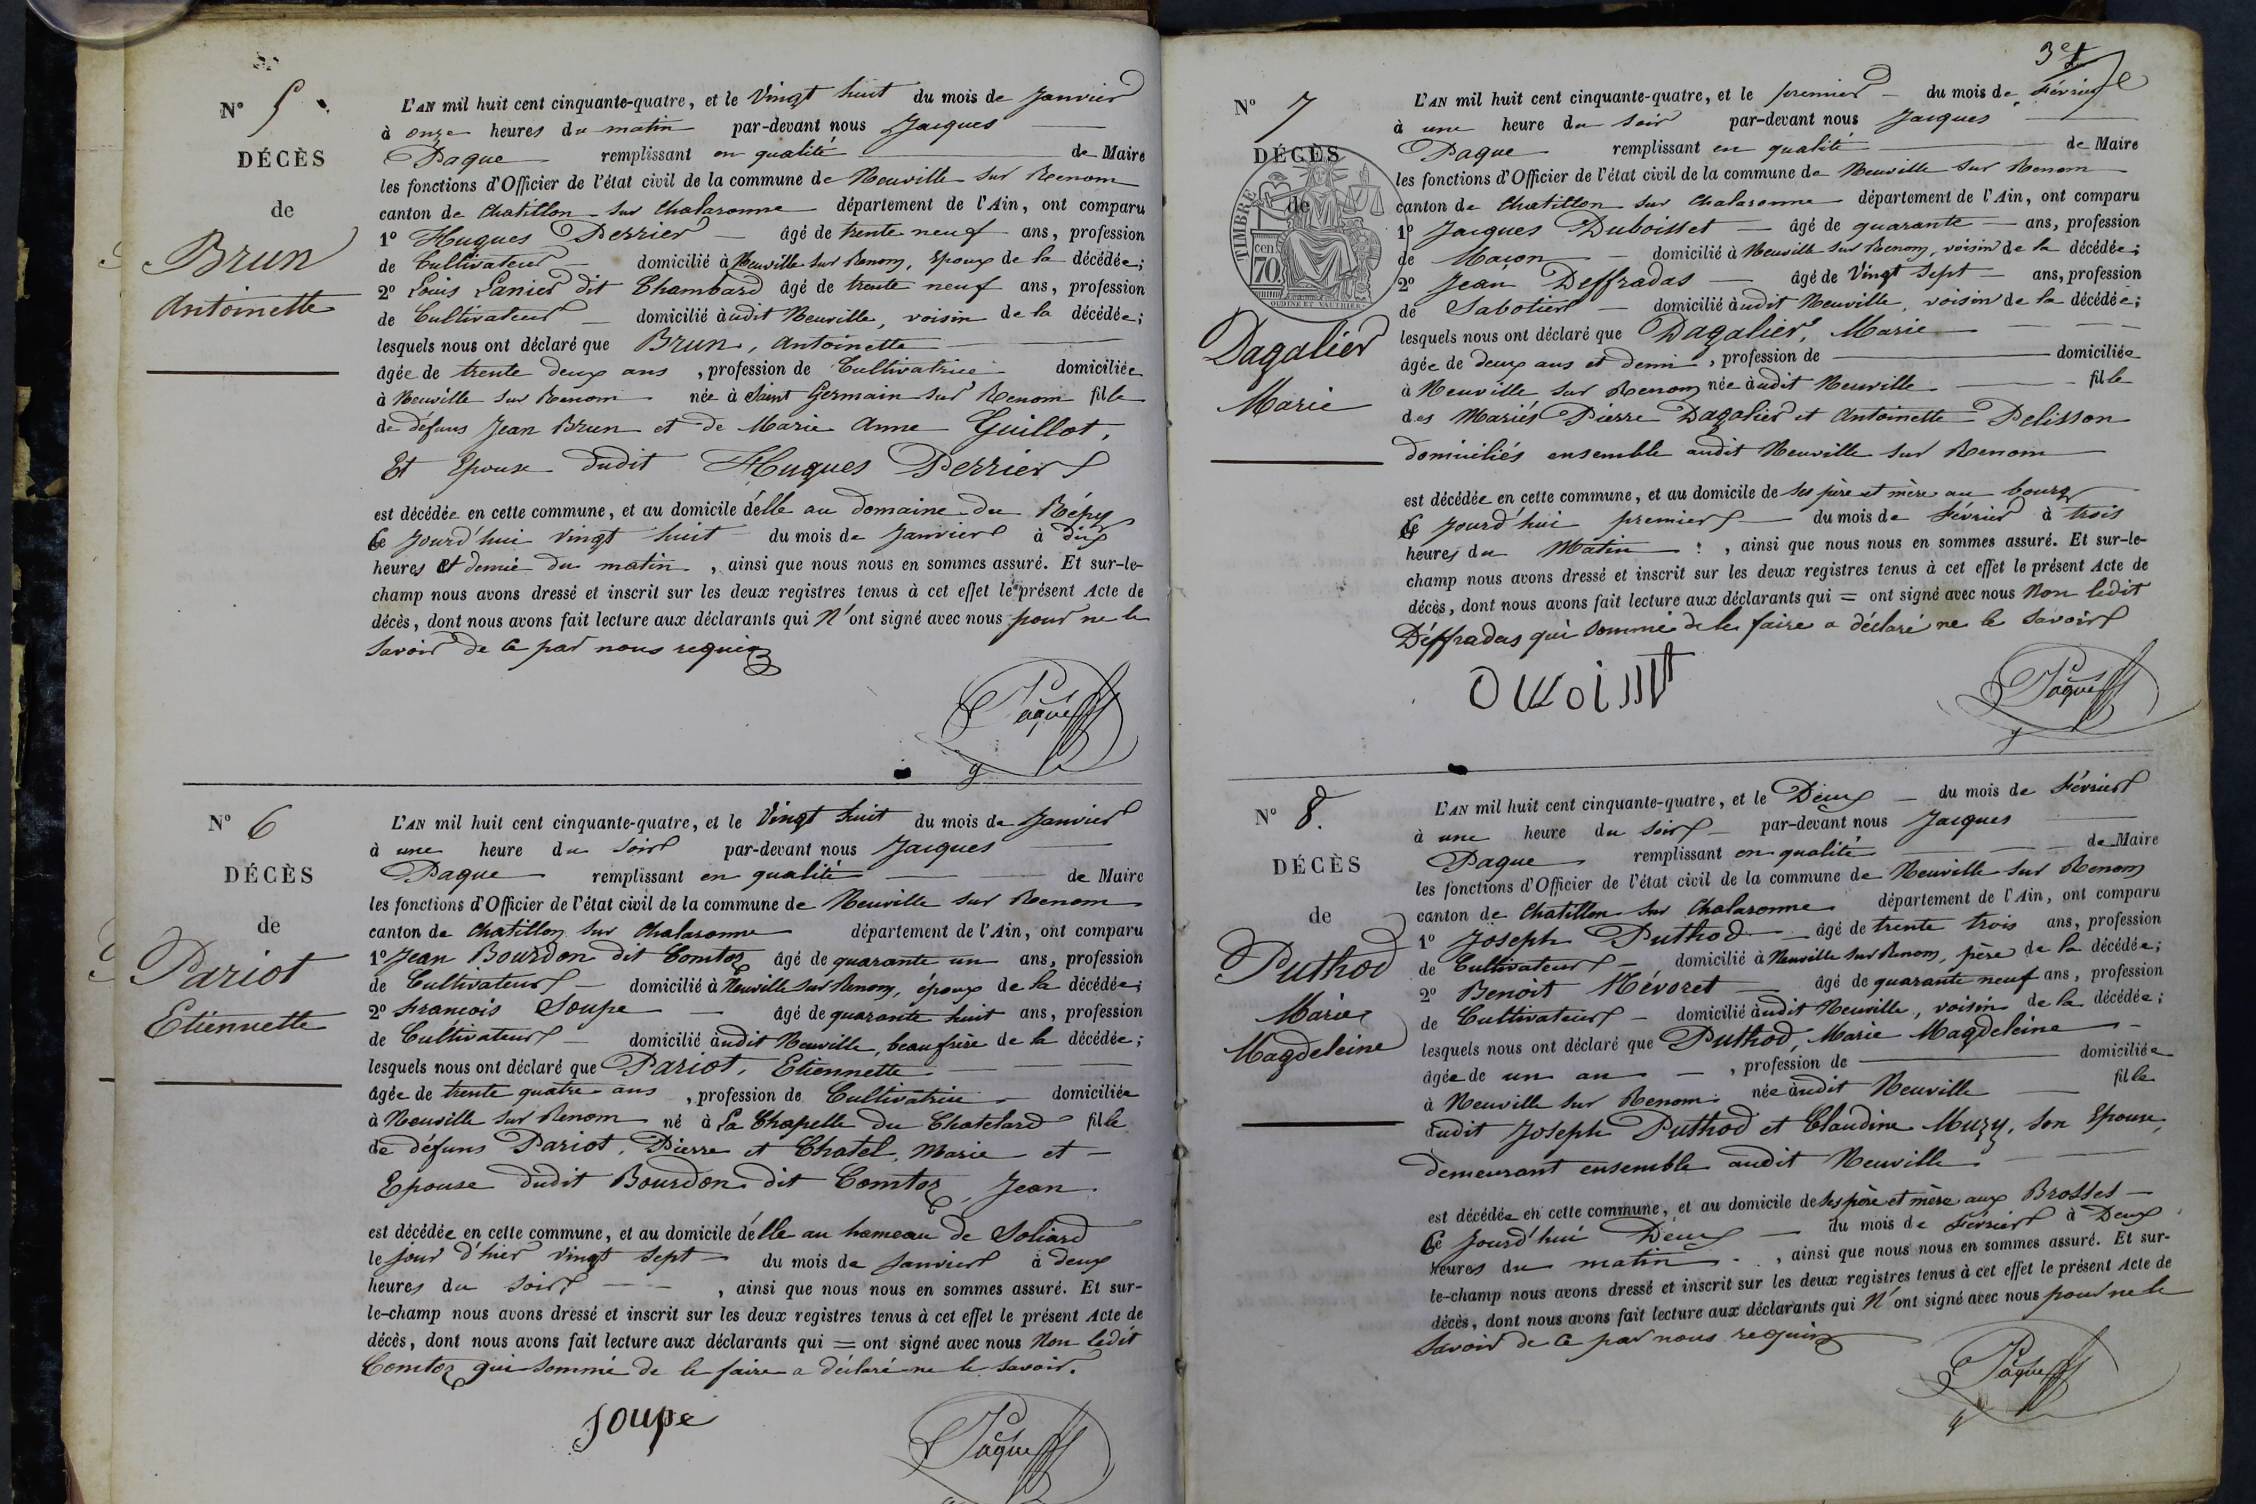 N° 5
DÉCÈS
de
Brun
Antoinette
L'AN mil huit cent cinquante-quatre, et le Vingt huit du mois de Janvier
à onze heures du matin par-devant nous Jacques
Paque remplissant en qualité de Maire
les fonctions d'Officier de l'état civil de la commune de Neuville sur Renom
canton de Chatillon sur Chalaronne département de l'Ain, ont comparu
1° Hugues Perrier âgé de trente neuf ans, profession
de Cultivateur domicilié à Neuville sur Renom, Epoux de la décédée;
2° Louis Lanier dit Chambard âgé de trente neuf ans, profession
de Cultivateur domicilié audit Neuville, voisin de la décédée;
lesquels nous ont déclaré que Brun, Antoinette
âgée de trente deux ans, profession de Cultivatrice domiciliée
à Neuville sur Renom née à Saint Germain sur Renom fille
de défuns Jean Brun et de Marie Anne Guillot,
Et Epouse dudit Hugues Perrier
est décédée en cette commune, et au domicile d'elle au domaine du Répy
Ce jourd'hui vingt huit du mois de Janvier à dix
heures et demie du matin, ainsi que nous nous en sommes assuré. Et sur-le-
champ nous avons dressé et inscrit sur les deux registres tenus à cet effet le présent Acte de
décès, dont nous avons fait lecture aux déclarants qui N'ont signé avec nous pour ne le
savoir de ce par nous requis
Paque
N° 6
DÉCÈS
de
Pariot
Etiennette
L'AN mil huit cent cinquante-quatre, et le Vingt huit du mois de Janvier
à une heure du soir par-devant nous Jacques
Paque remplissant en qualité de Maire
les fonctions d'Officier de l'état civil de la commune de Neuville sur Renom
canton de Chatillon sur Chalaronne département de l'Ain, ont comparu
1° Jean Bourdon dit Comtoz âgé de quarante un ans, profession
de Cultivateur domicilié à Neuville sur Renom, époux de la décédée;
2° François Soupe âgé de quarante huit ans, profession
de Cultivateur domicilié audit Neuville, beaufrère de la décédée;
lesquels nous ont déclaré que Pariot, Etiennette
âgée de trente quatre ans, profession de Cultivatrice domiciliée
à Neuville sur Renom né à La Chapelle du Chatelard fille
de défuns Pariot, Pierre et Chatel, Marie et
Epouse dudit Bourdon dit Comtoz, Jean
est décédée en cette commune, et au domicile d'elle au hameau de Soliard
le jour d'hier vingt sept du mois de Janvier à deux
heures du soir, ainsi que nous nous en sommes assuré. Et sur-
le-champ nous avons dressé et inscrit sur les deux registres tenus à cet effet le présent Acte de
décès, dont nous avons fait lecture aux déclarants qui = ont signé avec nous Non ledit
Comtoz qui sommé de le faire a déclaré ne le savoir.
Soupe
Paque
3e
N° 7
DÉCÈS
de
TIMBRE
cen
70.
OUDINÉ ET VAUTHIER
Dagalier
Marie
L'AN mil huit cent cinquante-quatre, et le premier du mois de Février
à une heure du soir par-devant nous Jacques
Paque remplissant en qualité de Maire
les fonctions d'Officier de l'état civil de la commune de Neuville sur Renom
canton de Chatillon sur Chalaronne département de l'Ain, ont comparu
1° Jacques Duboisset âgé de quarante ans, profession
de Maçon domicilié à Neuville sur Renom, voisin de la décédée;
2° Jean Deffradas âgé de Vingt sept ans, profession
de Sabotier domicilié audit Neuville, voisin de la décédée;
lesquels nous ont déclaré que Dagalier, Marie
âgée de deux ans et demi, profession de domiciliée
à Neuville sur Renom née audit Neuville fille
des Mariés Pierre Dagalier et Antoinette Pelisson
domiciliés ensemble audit Neuville sur Renom
est décédée en cette commune, et au domicile de ses père et mère au bourg
Ce jourd'hui premier du mois de Février à trois
heures du Matin, ainsi que nous nous en sommes assuré. Et sur-le-
champ nous avons dressé et inscrit sur les deux registres tenus à cet effet le présent Acte de
décès, dont nous avons fait lecture aux déclarants qui = ont signé avec nous Non ledit
Déffradas qui sommé de le faire a déclaré ne le savoir
Paque
N° 8.
DÉCÈS
de
Puthod
Marie
Magdeleine
L'AN mil huit cent cinquante-quatre, et le Deux du mois de Février
à une heure du soir par-devant nous Jacques
Paque remplissant en qualité de Maire
les fonctions d'Officier de l'état civil de la commune de Neuville sur Renom
canton de Chatillon sur Chalaronne département de l'Ain, ont comparu
1° Joseph Puthod âgé de trente trois ans, profession
de Cultivateur domicilié à Neuville sur Renom, père de la décédée;
2° Benoit Névoret âgé de quarante neuf ans, profession
de Cultivateur domicilié audit Neuville, voisin de la décédée;
lesquels nous ont déclaré que Puthod, Marie Magdeleine
âgée de un an, profession de domiciliée
à Neuville sur Renom née audit Neuville fille
dudit Joseph Puthod et Claudine Muzy, son Epouse,
demeurant ensemble audit Neuville
est décédée en cette commune, et au domicile de ses père et mère aux Brosses
Ce jourd'hui Deux du mois de Février à Deux
heures du matin, ainsi que nous nous en sommes assuré. Et sur-
le-champ nous avons dressé et inscrit sur les deux registres tenus à cet effet le présent Acte de
décès, dont nous avons fait lecture aux déclarants qui N'ont signé avec nous pour ne le
savoir de ce par nous requis
Paque